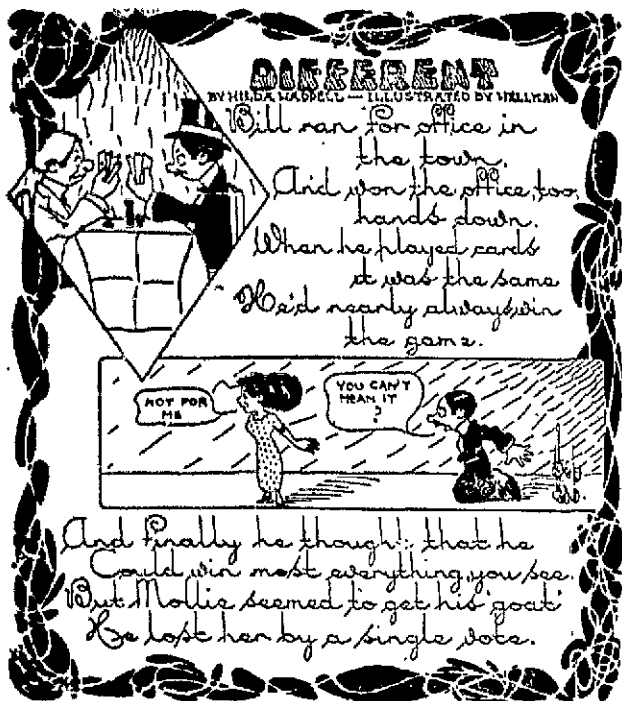 DIFFERENT
BY HILDA WADDELL — ILLUSTRATED BY HELLMAN
Bill ran for office in
the town,
And won the office, too,
hands down.
When he played cards
it was the same
He'd nearly always win
the game.
NOT FOR
ME
YOU CAN'T
MEAN IT
?
And finally he thought that he
Could win most everything, you see.
But Mollie seemed to get his 'goat'
He lost her by a single vote.